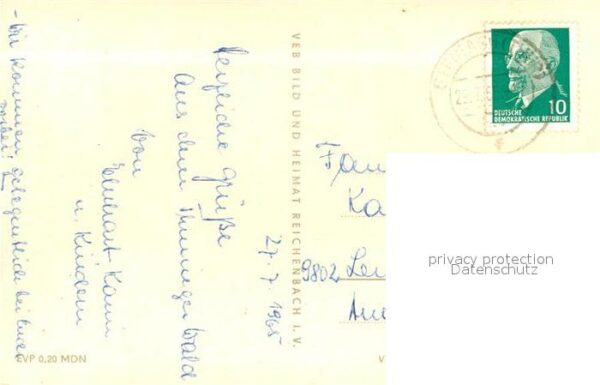 Herzliche Grüße
Aus dem Thüringer Wald
von
u. Kindern
27. 7. 1965
- Wir kommen gelegentlich bei Euch
vorbei!
VEB BILD UND HEIMAT REICHENBACH I. V.
EVP 0,20 MDN
V
10
DEUTSCHE
DEMOKRATISCHE REPUBLIK
Fam
Ka
9802 Len
privacy protection
Datenschutz